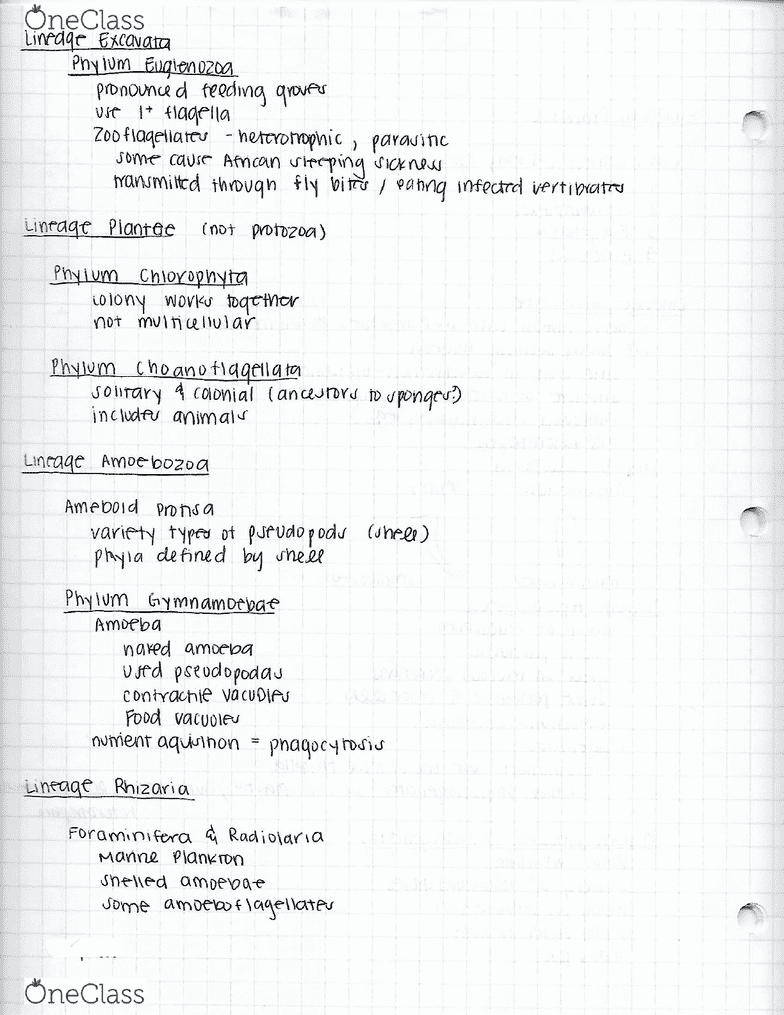 OneClass
Lineage Excavata
Phylum Euglenozoa
pronounced feeding groves
use 1+ flagella
Zooflagellates - heterotrophic, parasitic
some cause African sleeping sickness
transmitted through fly bites / eating infected vertibrates
Lineage Plantae (not protozoa)
Phylum Chlorophyta
colony works together
not multicellular
Phylum Choanoflagellata
solitary & colonial (ancestors to sponges?)
includes animals
Lineage Amoebozoa
Ameboid Protisa
variety types of pseudopods (shell)
phyla defined by shell
Phylum Gymnamoebae
Amoeba
naked amoeba
used pseudopodas
contractile vacuoles
Food vacuoles
nutrient aquisition = phagocytosis
Lineage Rhizaria
Foraminifera & Radiolaria
Marine Plankton
shelled amoebae
some amoeboflagellates
OneClass